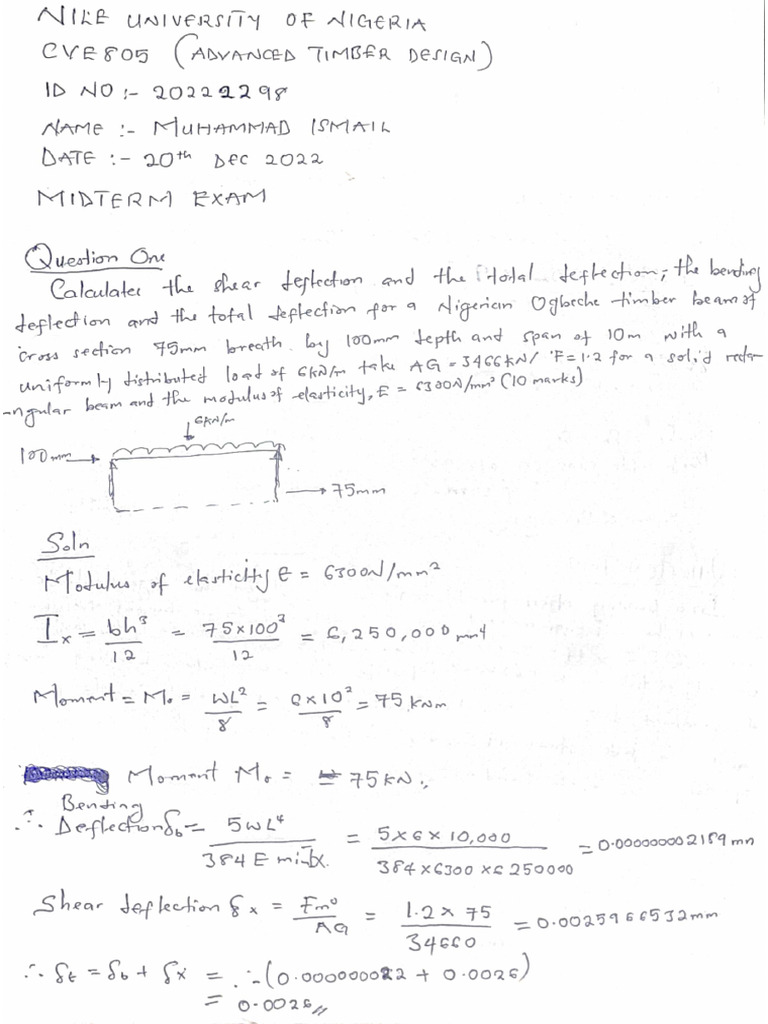 NILE UNIVERSITY OF NIGERIA
CVE805 (ADVANCED TIMBER DESIGN)
ID NO :- 20222298
NAME :- MUHAMMAD ISMAIL
DATE :- 20th DEC 2022
MIDTERM EXAM
Question One
Calculates the shear deflection and the total deflection, the bending
deflection and the total deflection for a Nigerian Ogbeche timber beam of
cross section 75mm breath by 100mm depth and span of 10m with a
uniformly distributed load of 6kN/m take AG = 3466kN/ 'F=1.2 for a solid recta-
-ngular beam and the modulus of elasticity, E = 6300N/mm² (10 marks)
6kN/m
100mm
75mm
Soln
Modulus of elasticity E = 6300N/mm²
Ix = bh³/12 = 75×100³/12 = 6,250,000 mm4
Moment = Mo = WL²/8 = 6×10²/8 = 75 kNm
Moment Mo = 75kN.
Bending
∴ Deflection δb = 5WL⁴ / 384 E = 5×6×10,000 / 384×6300×6250000 = 0.000000002189 mm
Shear deflection δx = Fmo/AG = 1.2×75/34660 = 0.0025966532mm
∴ δt = δb + δx = ∴ (0.000000022 + 0.0026)
= 0.0026